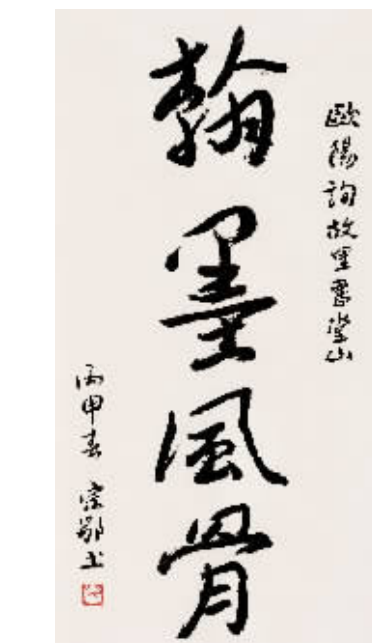 歐陽詢故里書堂山
翰墨風骨
丙申春 宗鄂書